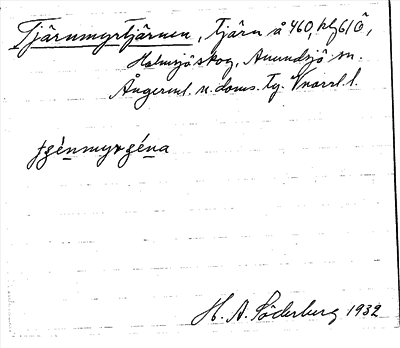 Tjärnmyrtjärnen, tjärn å 460,
Holmsjöskog, Anundsjö sn.
Ångerml. n. doms. tg. Vnorrl. l.
H. A. Söderberg 1932